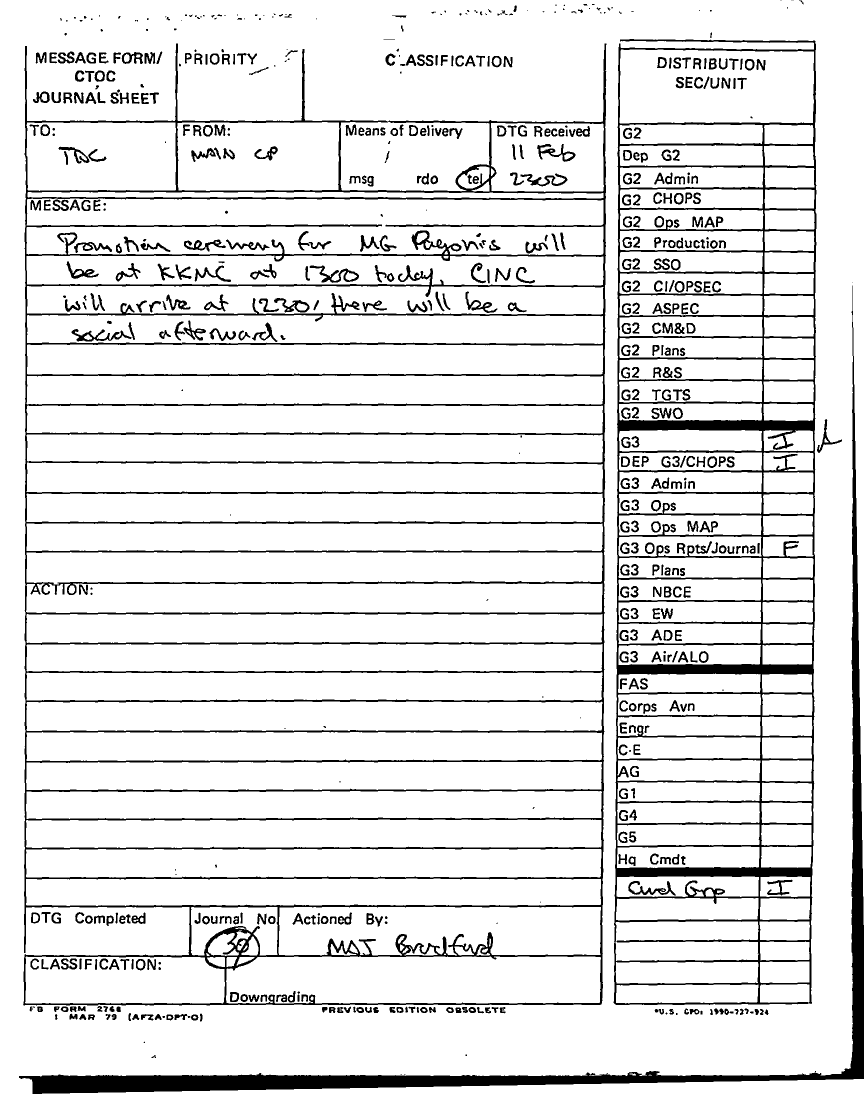 MESSAGE FORM/
CTOC
JOURNAL SHEET
PRIORITY
CLASSIFICATION
TO:
TAC
FROM:
MAIN CP
Means of Delivery
msg rdo tel
DTG Received
11 Feb
2300
MESSAGE:
Promotion ceremony for MG Pagonis will
be at KKMC at 1300 today. CINC
will arrive at 1230, there will be a
social afterward.
ACTION:
DTG Completed
Journal No
30
Actioned By:
MAJ Bradford
CLASSIFICATION:
Downgrading
FB FORM 2768
1 MAR 79 (AFZA-DPT-O)
PREVIOUS EDITION OBSOLETE
DISTRIBUTION
SEC/UNIT
G2
Dep G2
G2 Admin
G2 CHOPS
G2 Ops MAP
G2 Production
G2 SSO
G2 CI/OPSEC
G2 ASPEC
G2 CM&D
G2 Plans
G2 R&S
G2 TGTS
G2 SWO
G3 I
DEP G3/CHOPS I
G3 Admin
G3 Ops
G3 Ops MAP
G3 Ops Rpts/Journal F
G3 Plans
G3 NBCE
G3 EW
G3 ADE
G3 Air/ALO
FAS
Corps Avn
Engr
C-E
AG
G1
G4
G5
Hq Cmdt
Cmd Grp I
*U.S. GPO: 1990-727-924